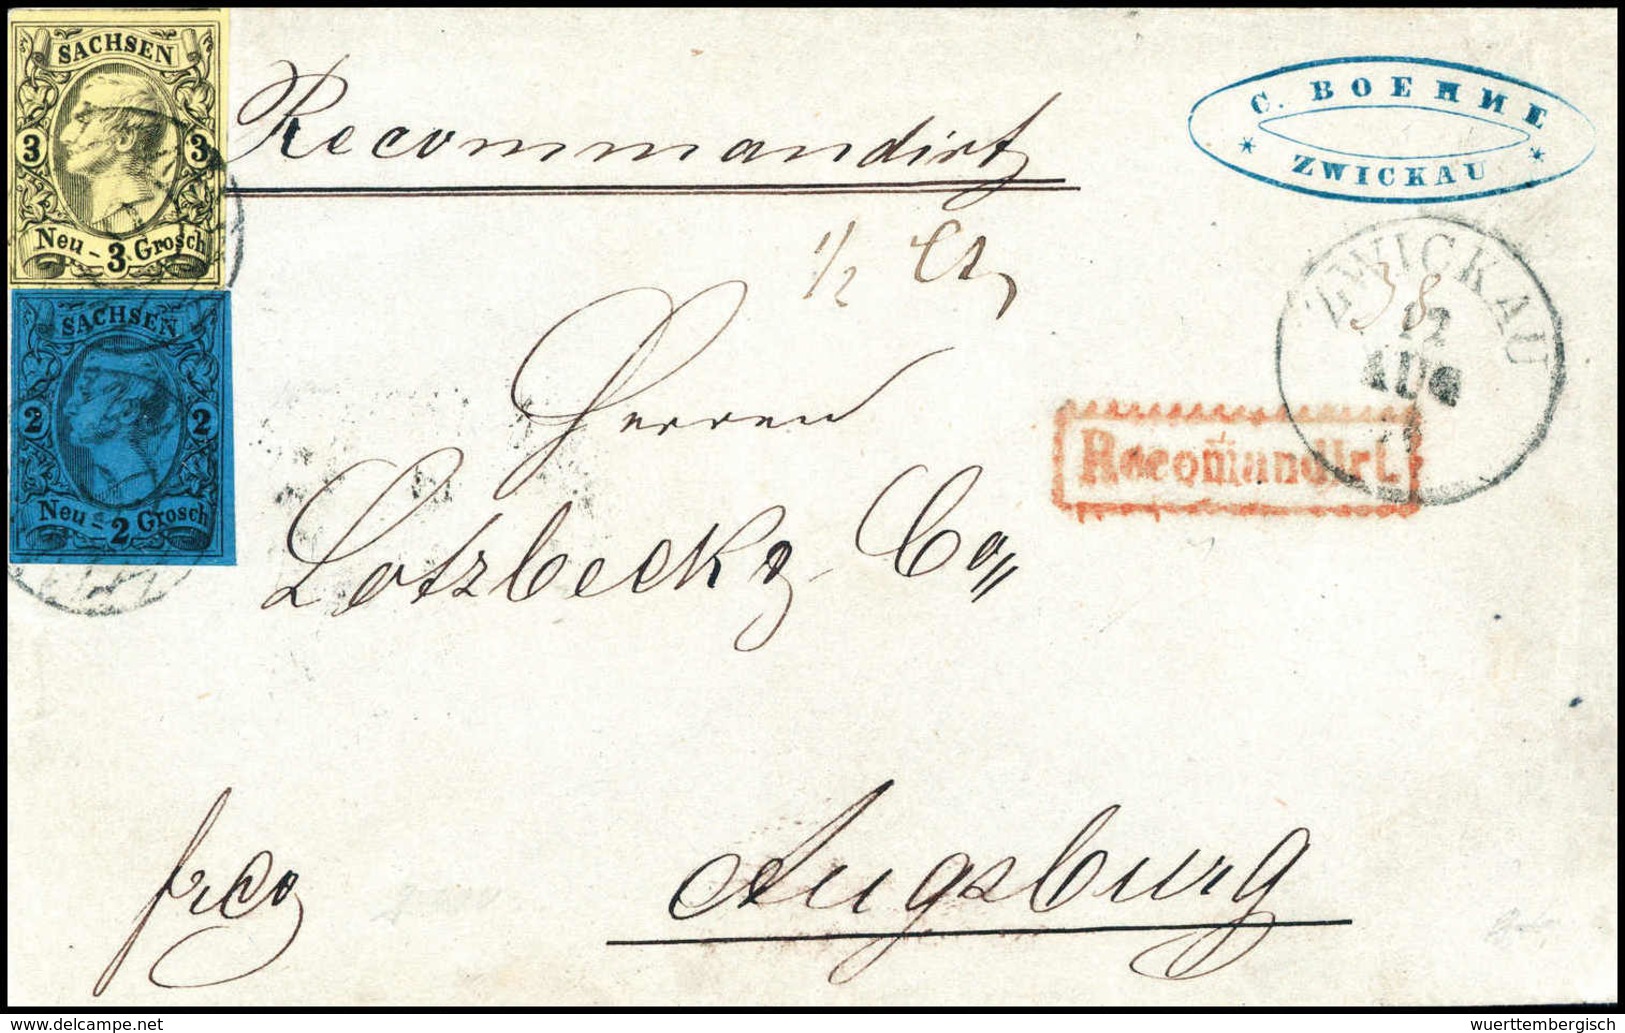 SACHSEN
3 3
Neu - 3 Grosch
SACHSEN
2 2
Neu - 2 Grosch
Recommandirt
C. BOEHME
* ZWICKAU *
ZWICKAU
12
AUG
38
1/2
Recomandirt.
Herren
Lotzbeck & Co
frco
Augsburg
wuerttembergisch